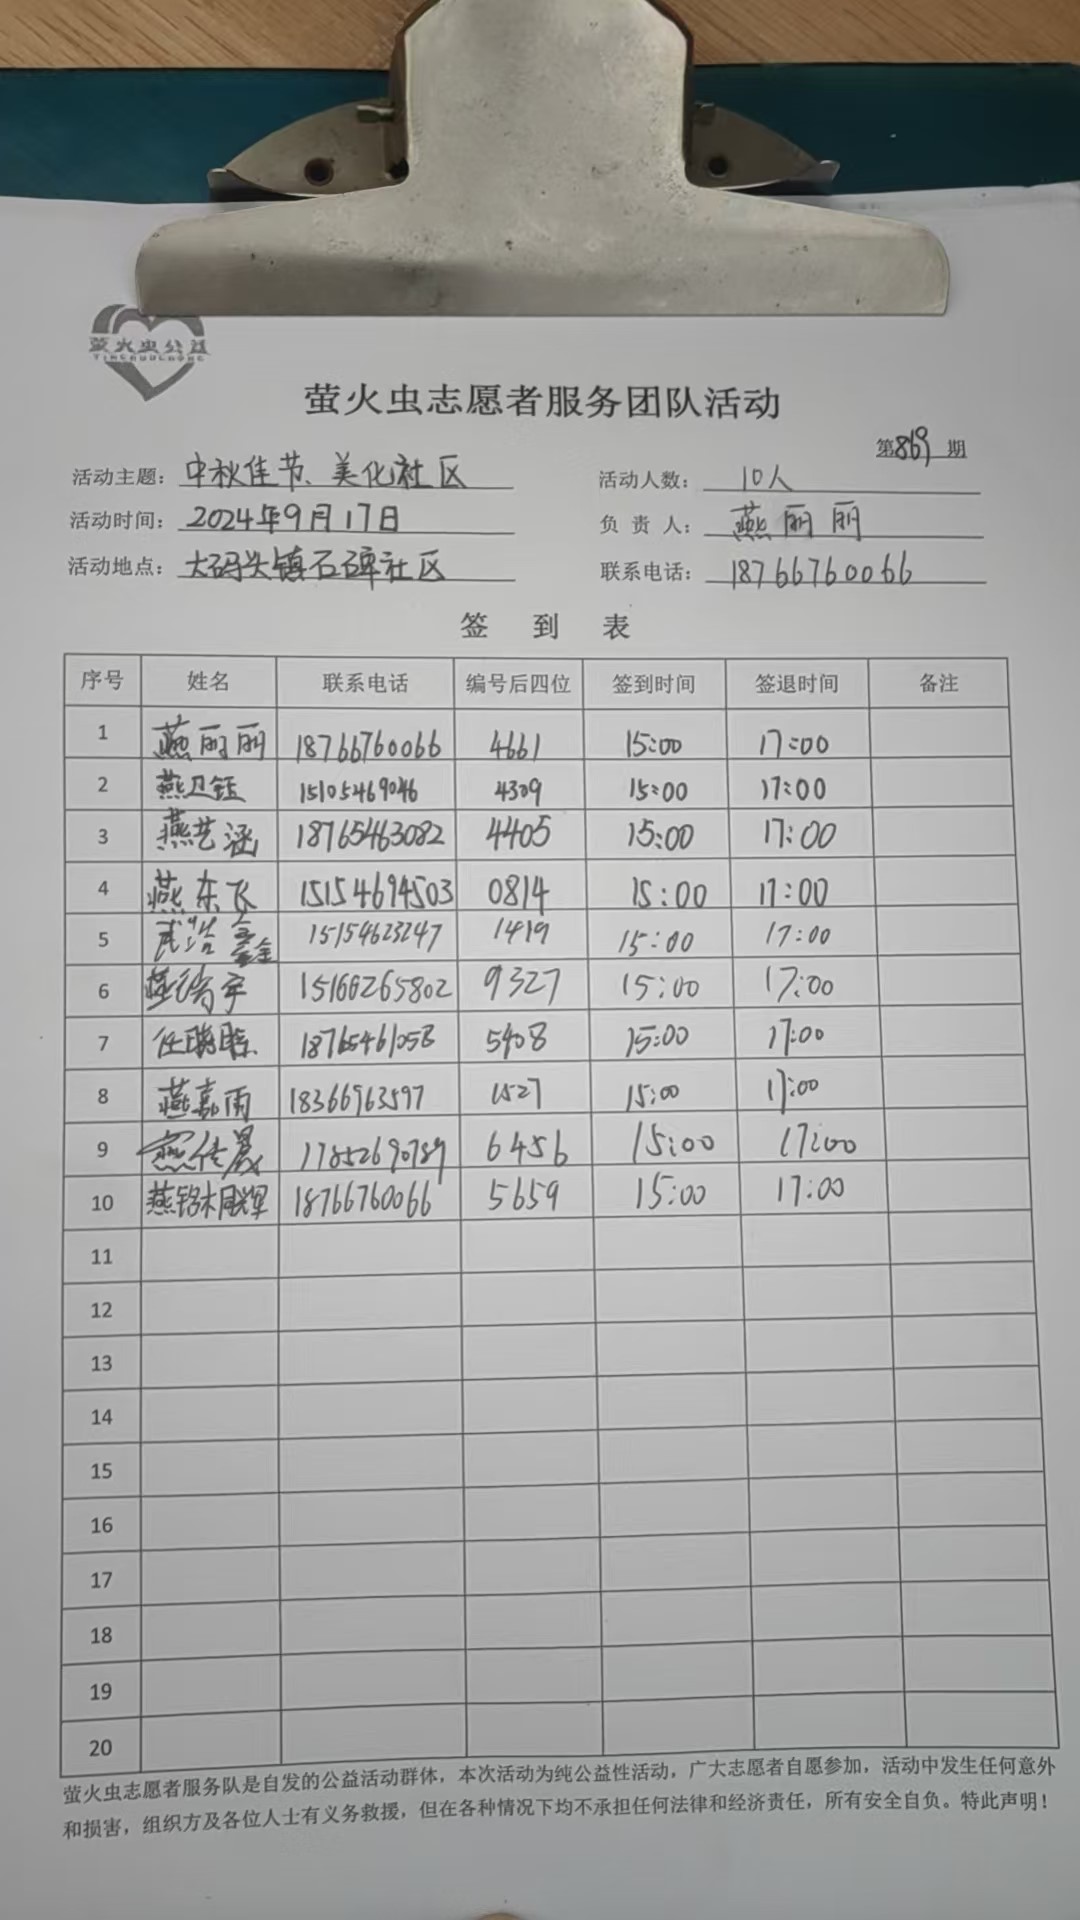 萤火虫公益
YINGHUOCHONG
萤火虫志愿者服务团队活动
第869期
活动主题：中秋佳节、美化社区 活动人数：10人
活动时间：2024年9月17日 负责人：燕丽丽
活动地点：大码头镇石碑社区 联系电话：18766760066
签到表
序号 姓名 联系电话 编号后四位 签到时间 签退时间 备注
1 燕丽丽 18766760066 4661 15:00 17:00
2 燕卫钰 15105469046 4309 15:00 17:00
3 燕艺涵 18765463082 4405 15:00 17:00
4 燕东飞 15154694503 0814 15:00 17:00
5 武浩鑫 15154623247 1419 15:00 17:00
6 燕 15166265802 9327 15:00 17:00
7 任 18765461058 5408 15:00 17:00
8 燕嘉雨 18366963597 1527 15:00 17:00
9 燕传晨 17852690789 6456 15:00 17:00
10 燕铭 18766760066 5659 15:00 17:00
11
12
13
14
15
16
17
18
19
20
萤火虫志愿者服务队是自发的公益活动群体，本次活动为纯公益性活动，广大志愿者自愿参加，活动中发生任何意外
和损害，组织方及各位人士有义务救援，但在各种情况下均不承担任何法律和经济责任，所有安全自负。特此声明！